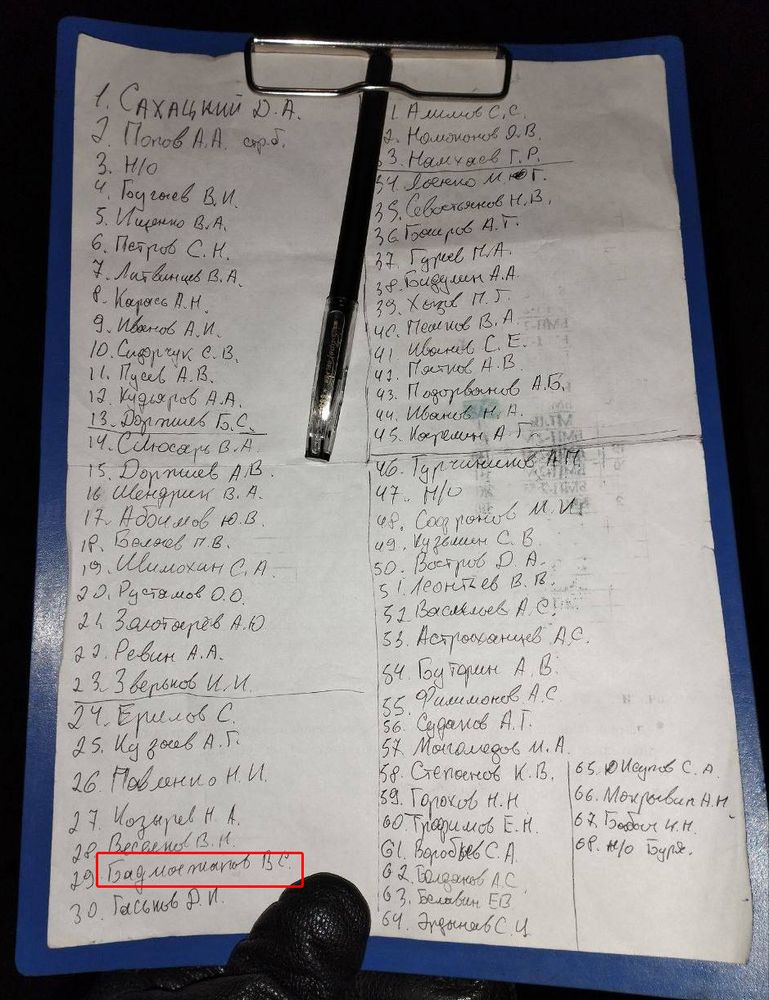 1. Сахацкий Д.А.
2. Попов А.А. стр.б.
3. Н/О
4. Бугаев В.И.
5. Ищенко В.А.
6. Петров С.Н.
7. Литвинцев В.А.
8. Карась А.Н.
9. Иванов А.И.
10. Сидорчук С.В.
11. Гусев А.В.
12. Кудьяров А.А.
13. Доржиев Б.С.
14. Слюсарь В.А.
15. Доржиев А.В.
16 Шендрик В.А.
17. Абоимов Ю.В.
18. Беляев П.В.
19. Шимохин С.А.
20. Рустамов О.О.
21. Золотарёв А.Ю
22. Ревин А.А.
23. Зверьков И.И.
24. Ермилов С.
25. Кузаев А.Г.
26. Павленко Н.И.
27. Козырев Н.А.
28. В.Н.
29. Бадмаев В.С.
30. Гаськов Д.И.
1. С.С.
2. Номоконов В.
33. Намхаев Г.Р.
34.
35. Севостьянов Н.В.
36 Башров А.Г.
37. Гуреев Н.А.
38. Бидулин А.А.
39. П.Г.
40. Пешков В.А.
41 Иванов С.Е.
42. Пятков А.В.
43. Подорванов А.Б.
44. Иванов Н.А.
45. Карелин А.Г.
46. Турчанинов А.Н.
47. Н/О
48. Софронов М.И.
49. Кузьмин С.В.
50. Востров Д.А.
51. Леонтьев В.В.
52 Васильев А.С.
53. Астраханцев А.С.
54. Буторин А.В.
55. Филимонов А.С
56. Судаков А.Г.
57. Монгомедов М.А.
58. Степанов К.В.
59. Горохов Н.Н
60. Трофимов Е.Н.
61. Воробьёв С.А.
62. Болданов А.С.
63. Белавин ЕВ
64. Эрдынеев С.Ц
65. Юсупов С.А.
66. Мокрывин А.Н
67. Бабич И.Н.
68. Н/О Буря.